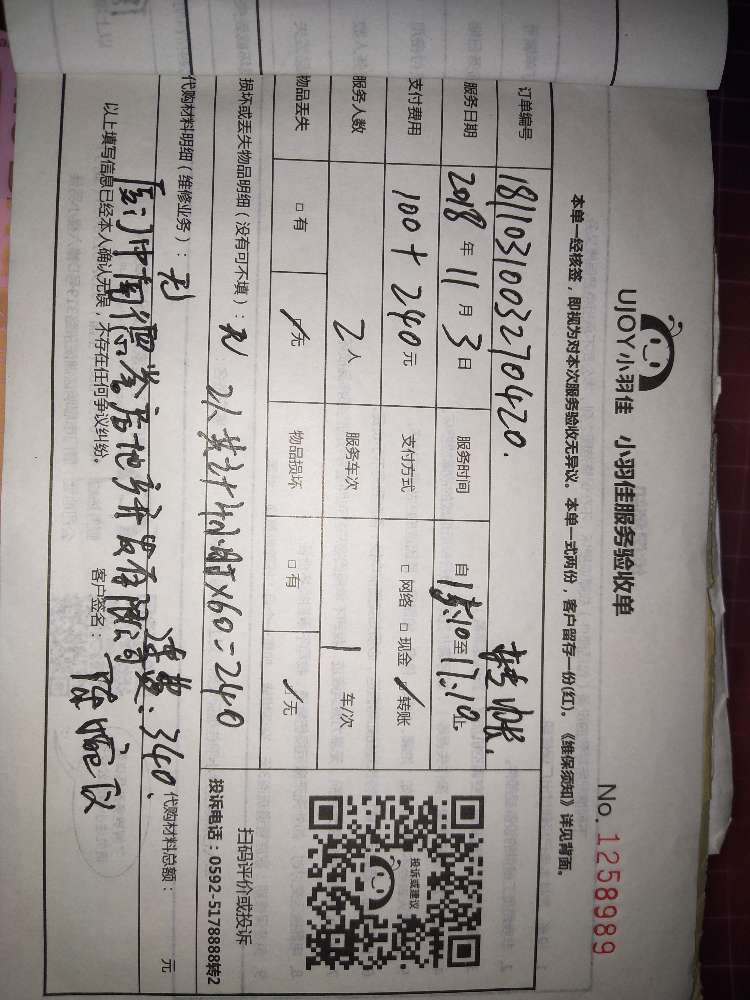 UJOY小羽佳 小羽佳服务验收单
No. 1258989
本单一经核签，即视为对本次服务验收无异议。本单一式两份，客户留存一份(红)。《维保须知》详见背面。
订单编号 1811031003270420.
服务日期 2018 年 11 月 3 日 服务时间 自 至 17:10 止
转账.
支付费用 100+240 元 支付方式 □ 网络 □ 现金 ✓ 转账
服务人数 2 人 服务车次 1 车/次
物品丢失 □ 有 ✓ 无 物品损坏 □ 有 ✓ 无
损坏或丢失物品明细（没有可不填）：
2人 共计 4小时×60=240
代购材料明细（维修业务）： 无
代购材料总额： 元
厦门中南 房地产开发有限公司
340.
以上填写信息已经本人确认无误，不存在任何争议纠纷。 客户签名：
投诉或建议
扫码评价或投诉
投诉电话：0592-5178888转2